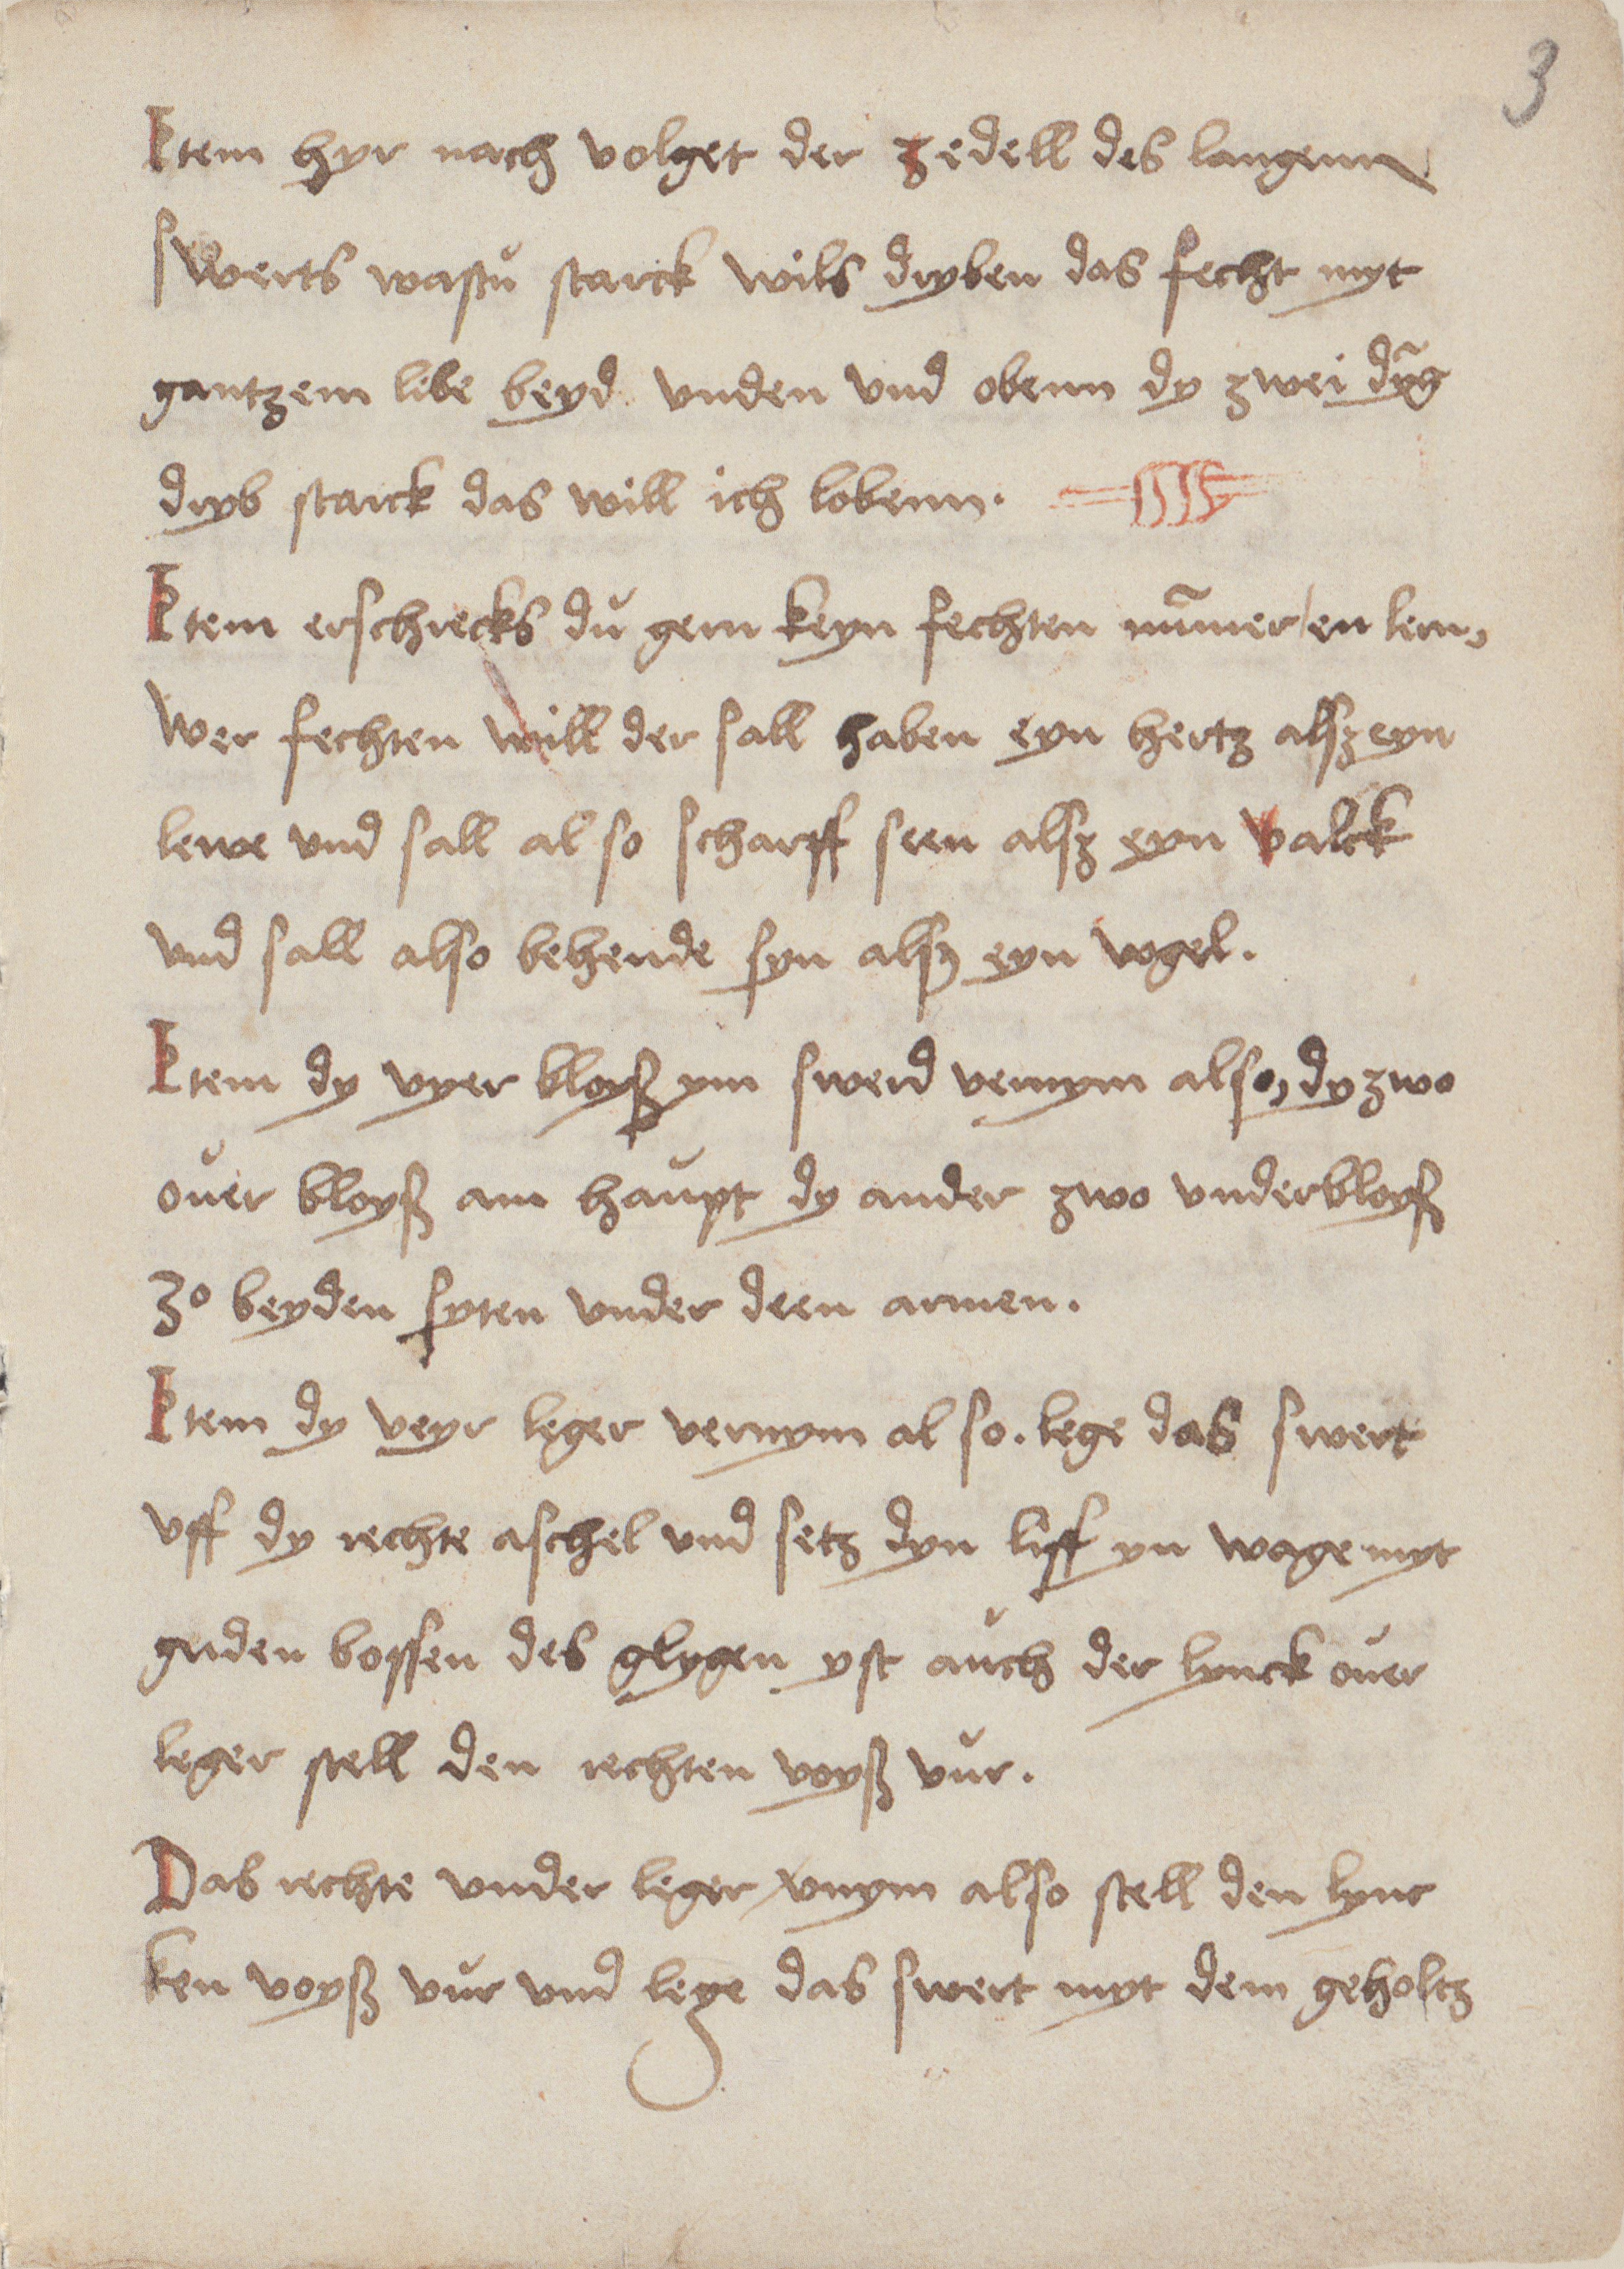 3
Item hyr nach volget der zedell des langenn
swerts wastu starck wils dryben das fecht myt
gantzem libe beyd vnden vnd obenn dy zwei dȳg
dryb starck das will ich lobenn.
Item erschrecks du gern keyn fechten nūmer en lern,
Wer fechten will der sall haben eyn hertz alsz eyn
lewe vnd sall al so scharff seen alsz eyn valck
vnd sall also behende syn alsz eyn vogel.
Item dy vyer bloyß ym swerd vernym also, dy zwo
ouer bloyß am haupt dy ander zwo vnderbloyß
zo beyden syten vnder deen armen.
Item dy veyr leger vernym al so. lege das swert
vff dy rechte aschel vnd setz dyn lyff yn wage myt
guden bossen des glygen yst auch der lynck ouer
leger stell den rechten voyß vur.
Das rechte vnder leger vnym also stell den lync
ken voyß vur vnd lege das swert myt dem geholtz